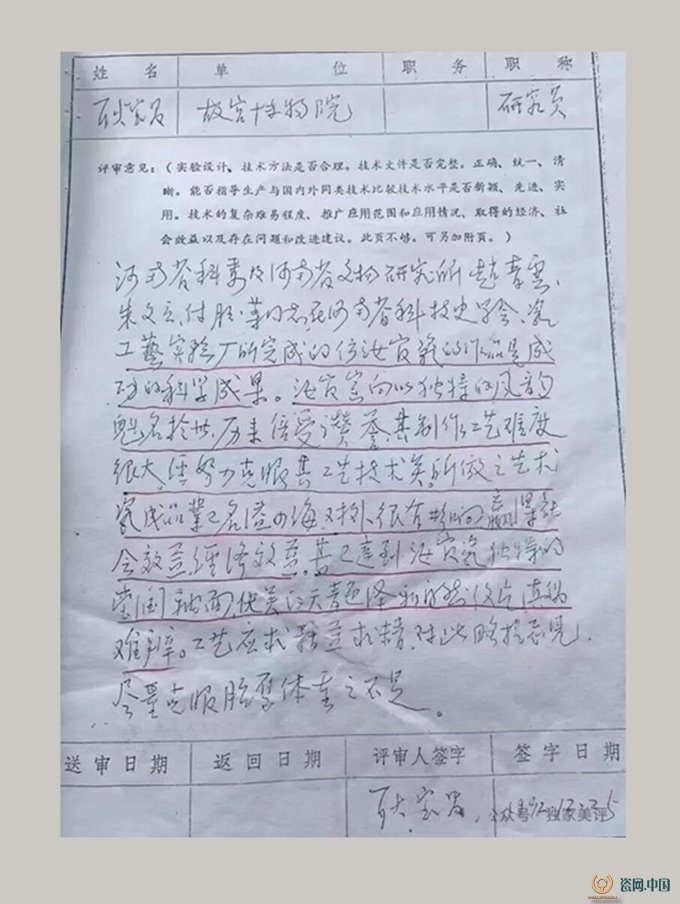 姓 名 单 位 职 务 职 称
耿宝昌 故宫博物院 研究员
评审意见：（实验设计、技术方法是否合理。技术文件是否完整。正确、统一、清
晰。能否指导生产与国内外同类技术比较技术水平是否新颖、先进、实
用。技术的复杂难易程度、推广应用范围和应用情况、取得的经济、社
会效益以及存在问题和改进建议。此页不够。可另加附页。）
河南省科委及河南省文物研究所赵青云、
朱文立、付胜 等同志在河南省科技史学会、瓷
工藝实验厂所完成的仿汝官瓷的作品是成
功的科学成果。汝官窑向以独特的风韵
魁名於世，历来倍受讚誉，其制作工艺难度
很大，经努力克服其工艺技术关，所做之艺术
瓷成品業已名溢四海
会效益經济效益。甚已達到汝官瓷独特的
莹润釉面优美的天青色泽和自然
难辨。工艺应求精益求精，对此略提意见，
尽量克服胎厚体重之不足。
送审日期 返回日期 评审人签字 签字日期
耿宝昌
公众号 独家美评
瓷网.中国